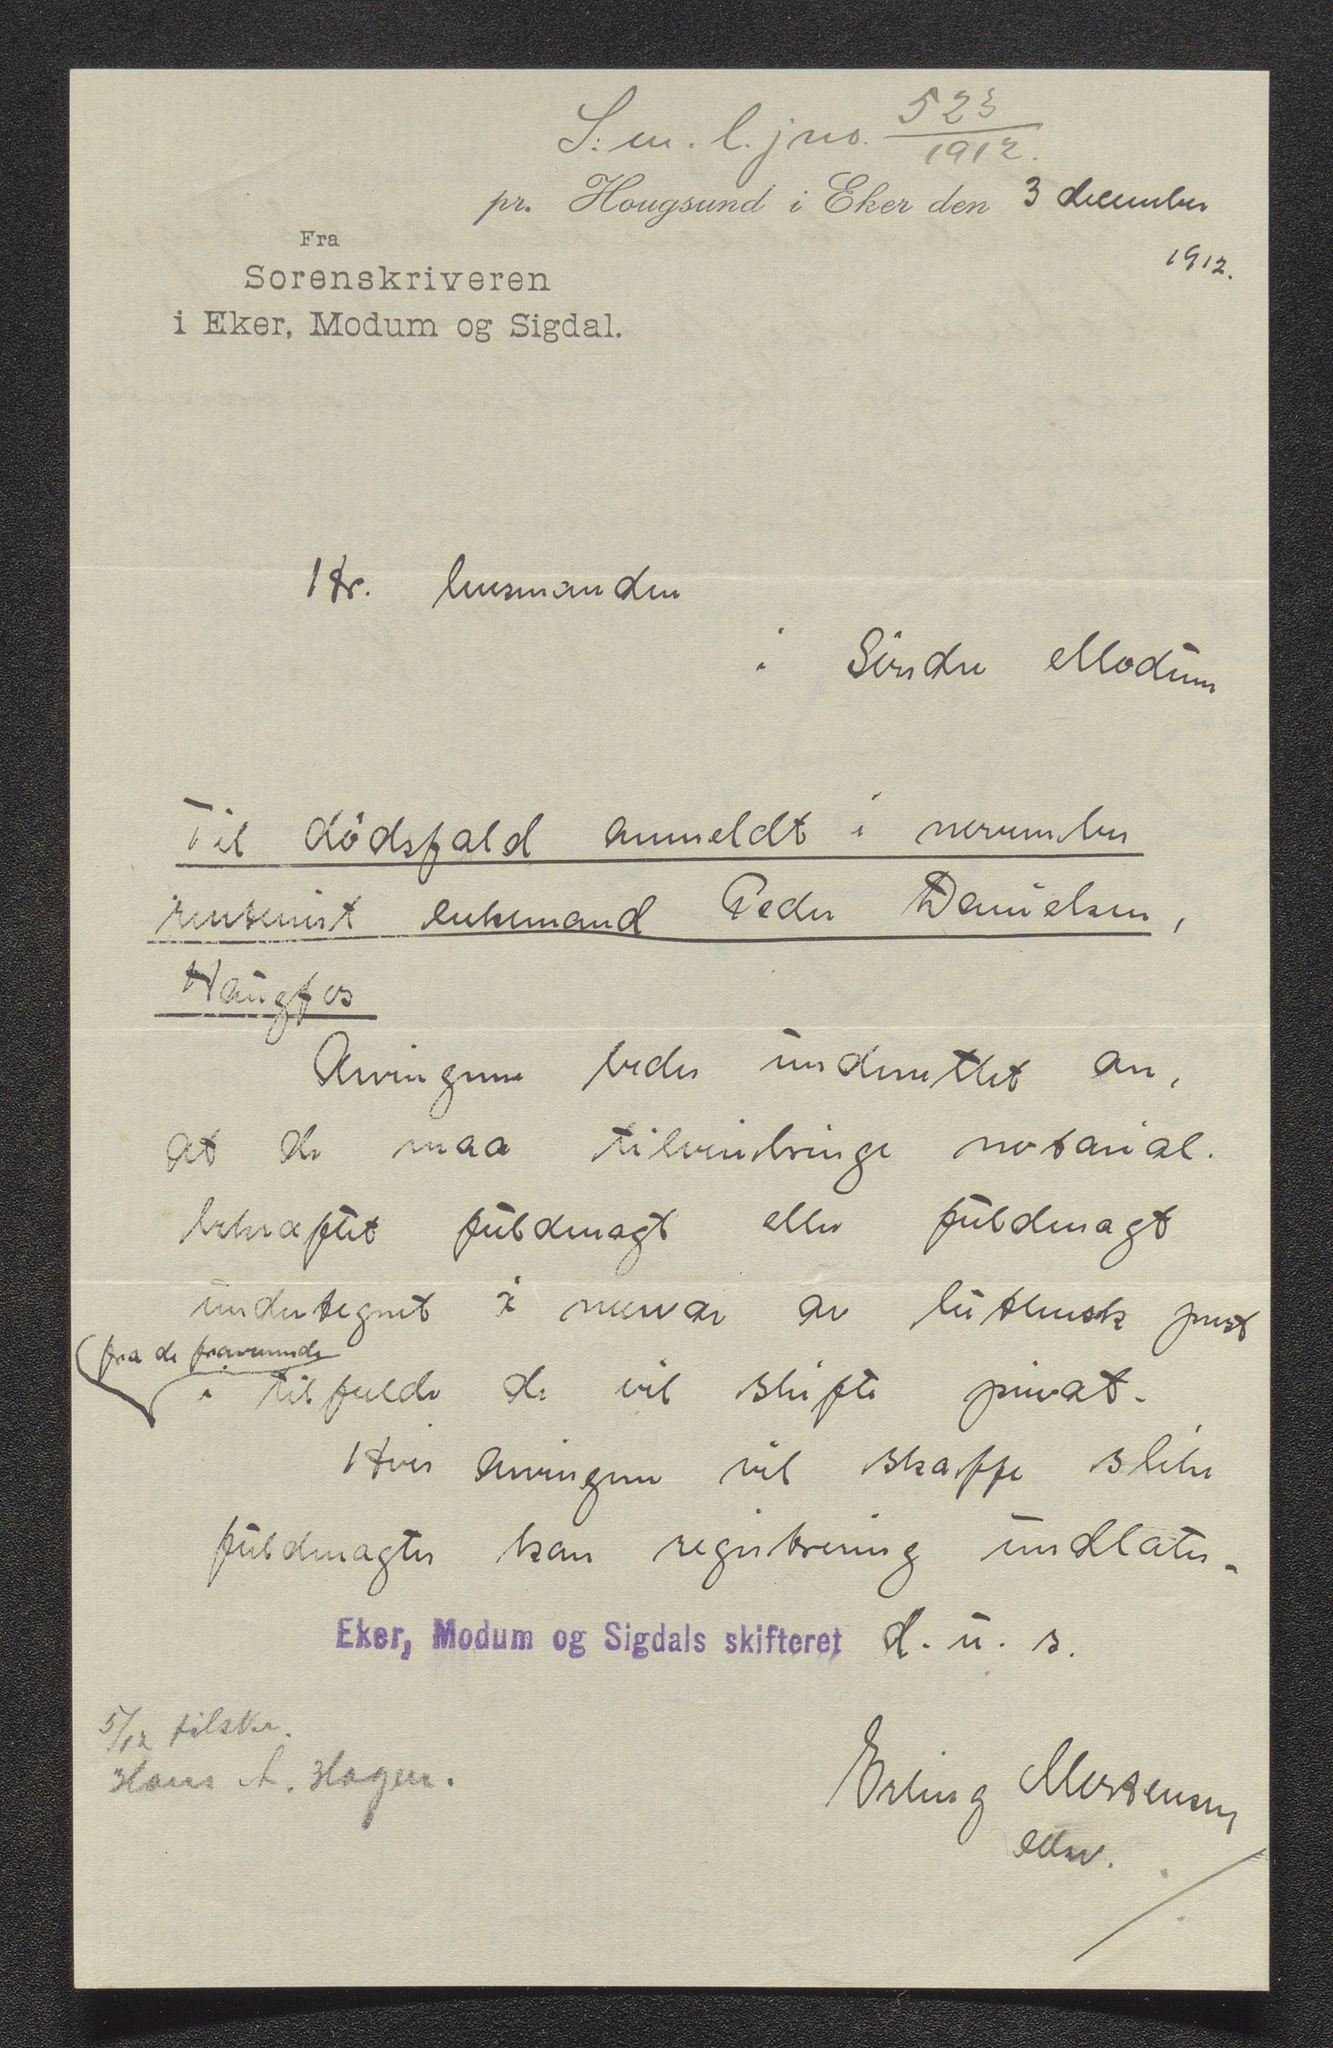 S. m. l. jno. 523/1912.
pr. Hougsund i Eker den 3 december
1912.
Fra
Sorenskriveren
i Eker, Modum og Sigdal.
Hr. lensmanden
i Søndre Modum
Til dødsfald anmeldt i november
rentenist enkemand Peder Danielsen,
Haugfos
Arvingerne bedes underrettet om,
at de maa tilveiebringe notarial.
bekræftet fuldmagt eller fuldmagt
undertegnet i nærvær av luthersk prest
fra de fraværende
i tilfælde de vil skifte privat.
Hvis arvingerne vil skaffe slike
fuldmagter kan registrering undlates.
Eker, Modum og Sigdals skifteret d. u. s.
5/12 tilskr.
Hans A. Hagen.
Erling Mortensen
edsv.